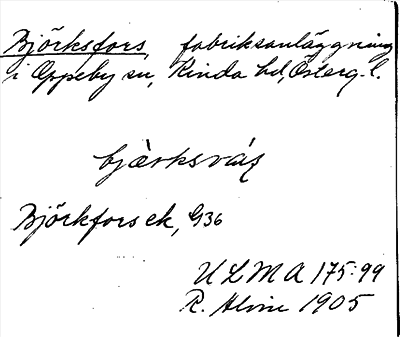 Björksfors, fabriksanläggning
i Oppeby sn, Kinda hd, Österg. l.
bjàrksváʃ
Björkfors ek, G36
ULMA 175:99
R. Alvin 1905